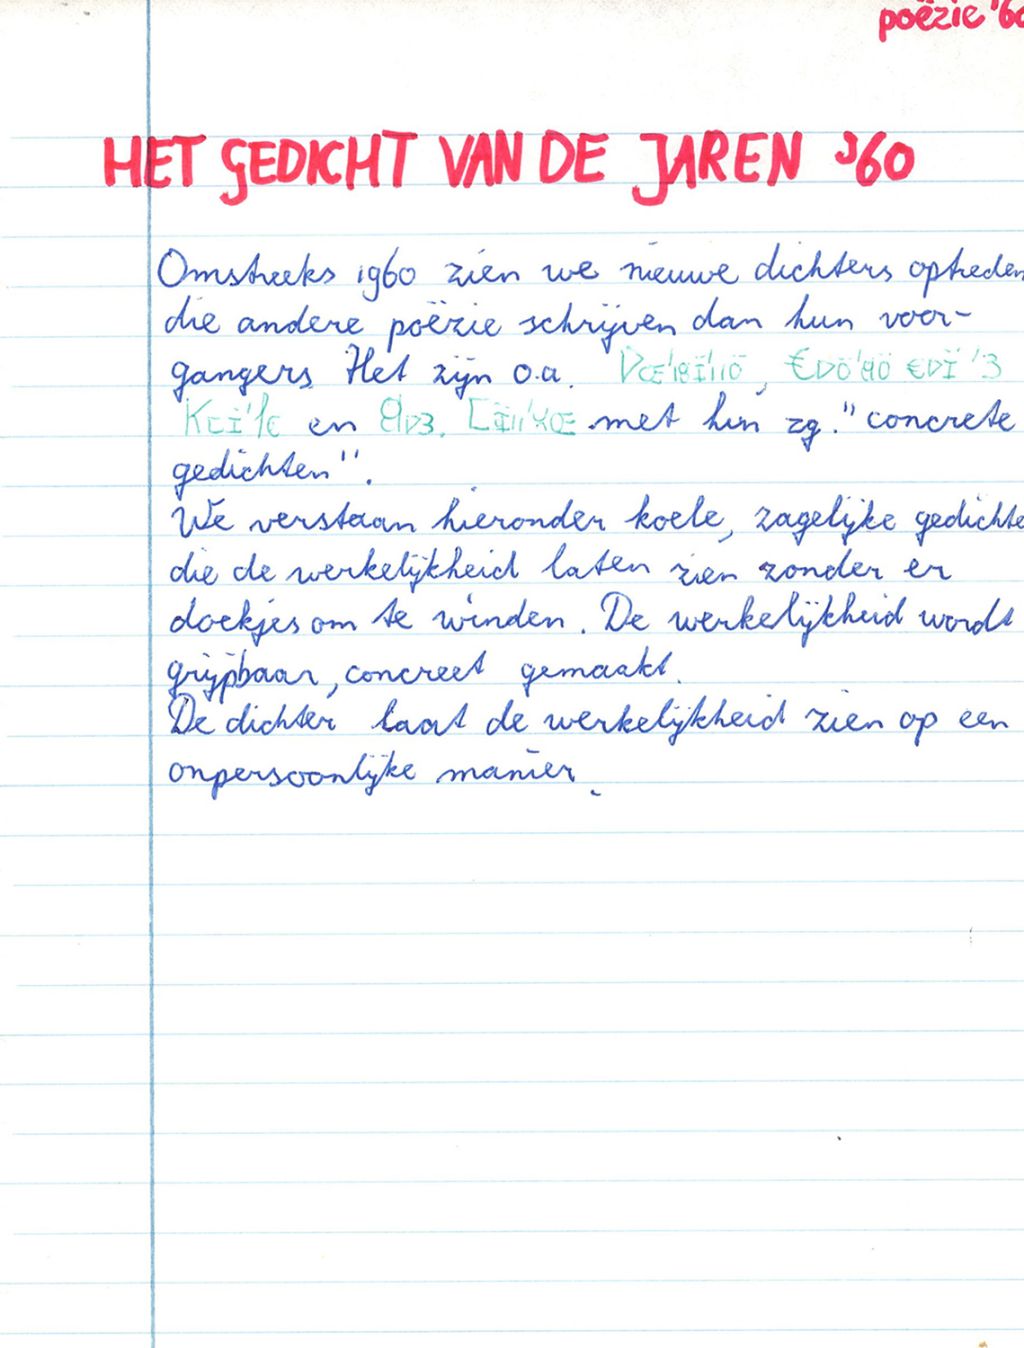 poëzie '60
HET GEDICHT VAN DE JAREN '60
Omstreeks 1960 zien we nieuwe dichters optreden
die andere poëzie schrijven dan hun voor-
gangers. Het zijn o.a.
en met hun zg. "concrete
gedichten".
We verstaan hieronder koele, zagelijke gedichte
die de werkelijkheid laten zien zonder er
doekjes om te winden. De werkelijkheid wordt
grijpbaar, concreet gemaakt.
De dichter laat de werkelijkheid zien op een
onpersoonlijke manier.